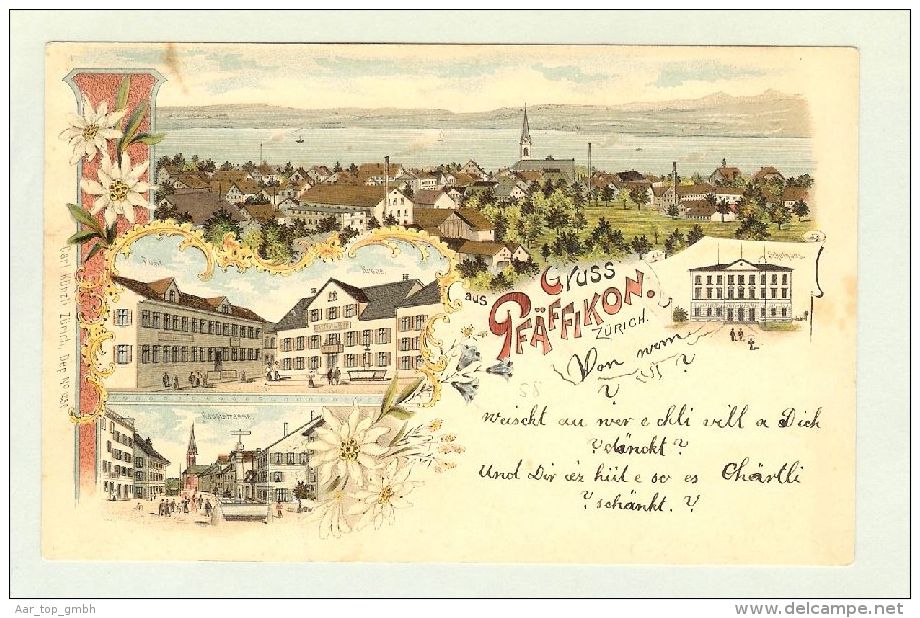 Gruss
aus
PFÄFFIKON.
ZÜRICH.
Post
Hauptstrasse.
Karl Künzli, Zürich, Dep. No
58
Von wem
ist ?
?
weischt au wer e chli vill a Dich
? dänckt ?
Und Dir iez hüt e so es Chärtli
? schänkt. ?
Aar_top_gmbh
www.delcampe.net